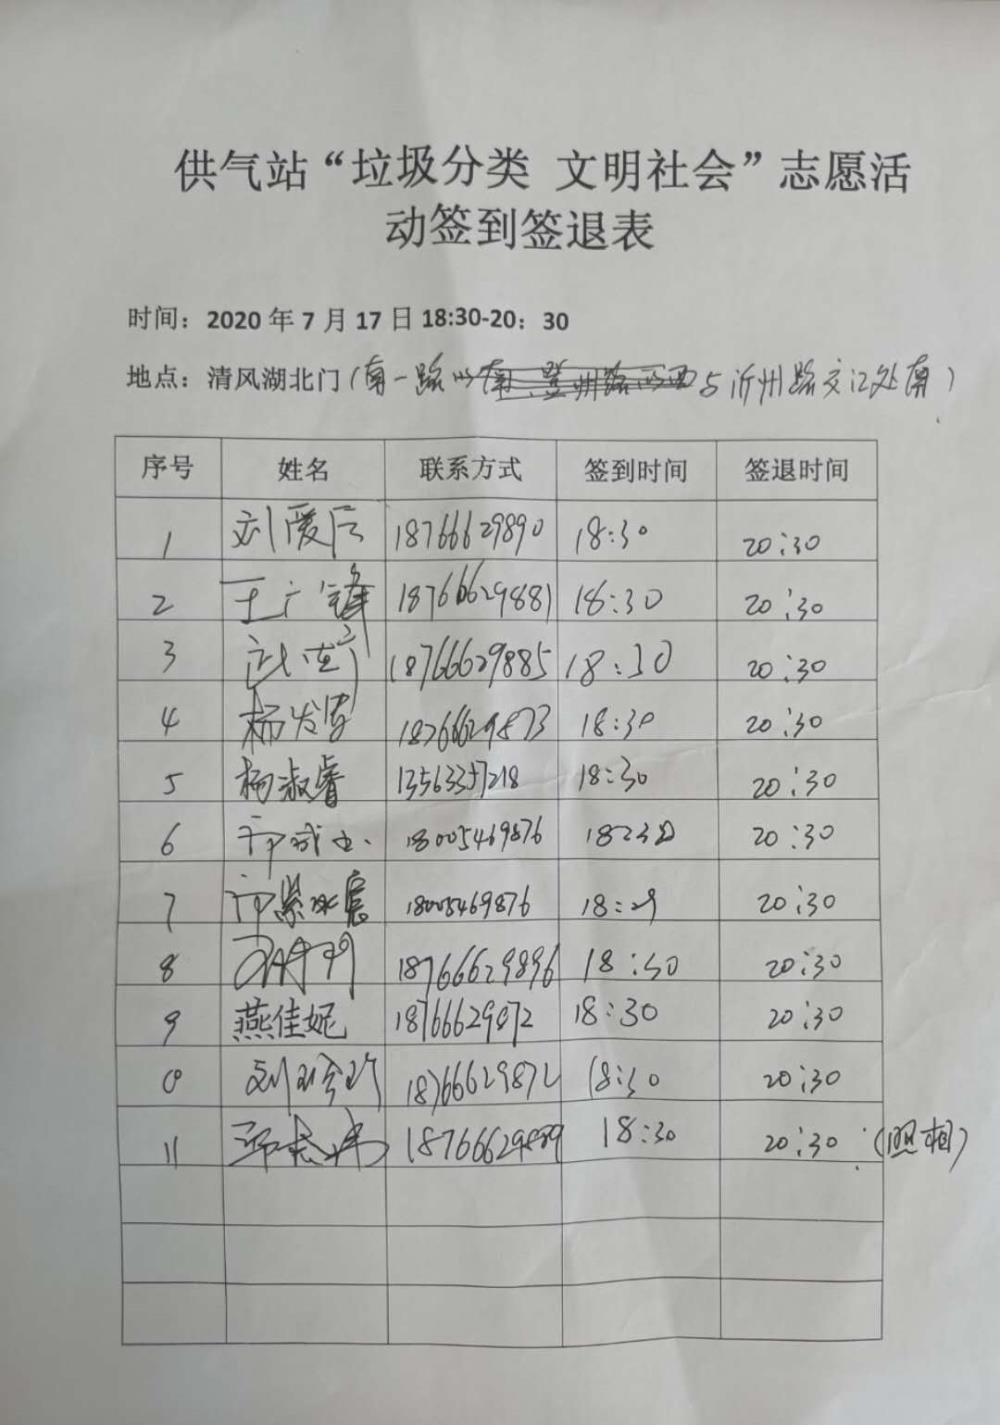 供气站“垃圾分类 文明社会”志愿活
动签到签退表
时间：2020 年 7 月 17 日 18:30-20：30
地点：清风湖北门（南一路与沂州路交汇处南）
序号 姓名 联系方式 签到时间 签退时间
1 刘爱后 18766629890 18:30 20:30
2 王广锋 18766629881 18:30 20:30
3 武 18766629885 18:30 20:30
4 杨发 18766629873 18:30 20:30
5 杨淑睿 13563357218 18:30 20:30
6 18005469876 20:30
7 18005469876 18:29 20:30
8 18766629896 18:30 20:30
9 燕佳妮 18766629872 18:30 20:30
10 刘 18766629872 18:30 20:30
11 18:30 20:30 （照相）